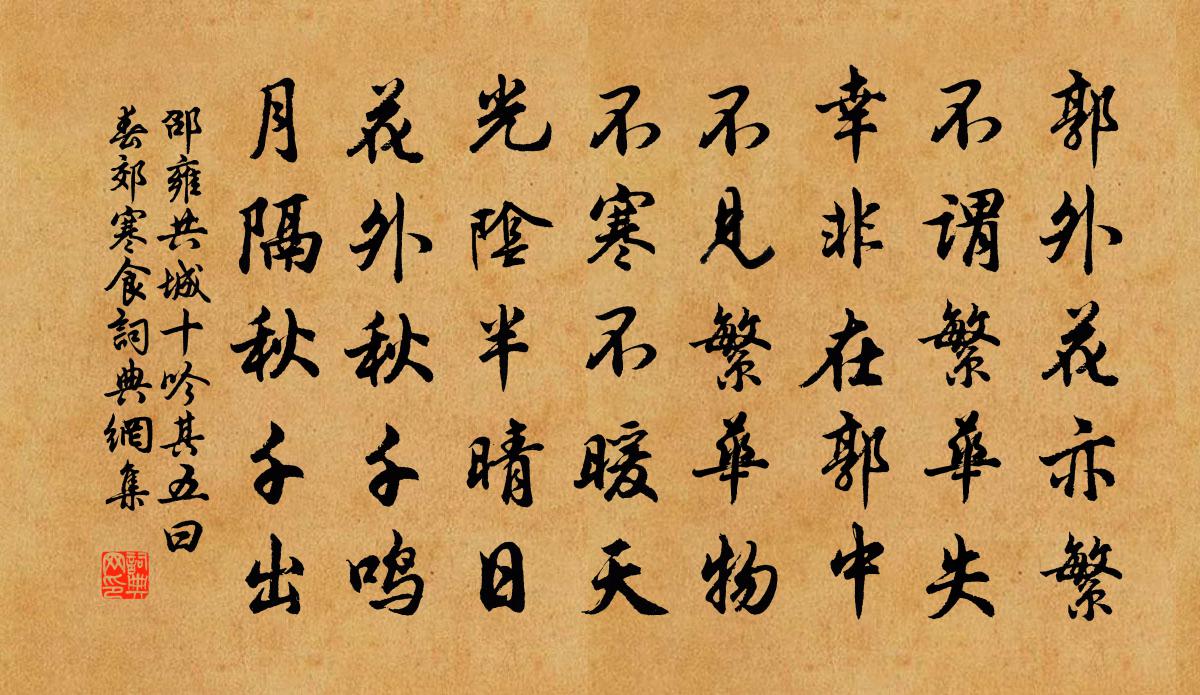 郭外花亦繁
不谓繁華失
幸非在郭中
不見繁華物
不寒不暖天
光陰半晴日
花外秋千鸣
月隔秋千出
邵雍共城十吟其五曰
春郊寒食詞典網集
詞典
网印